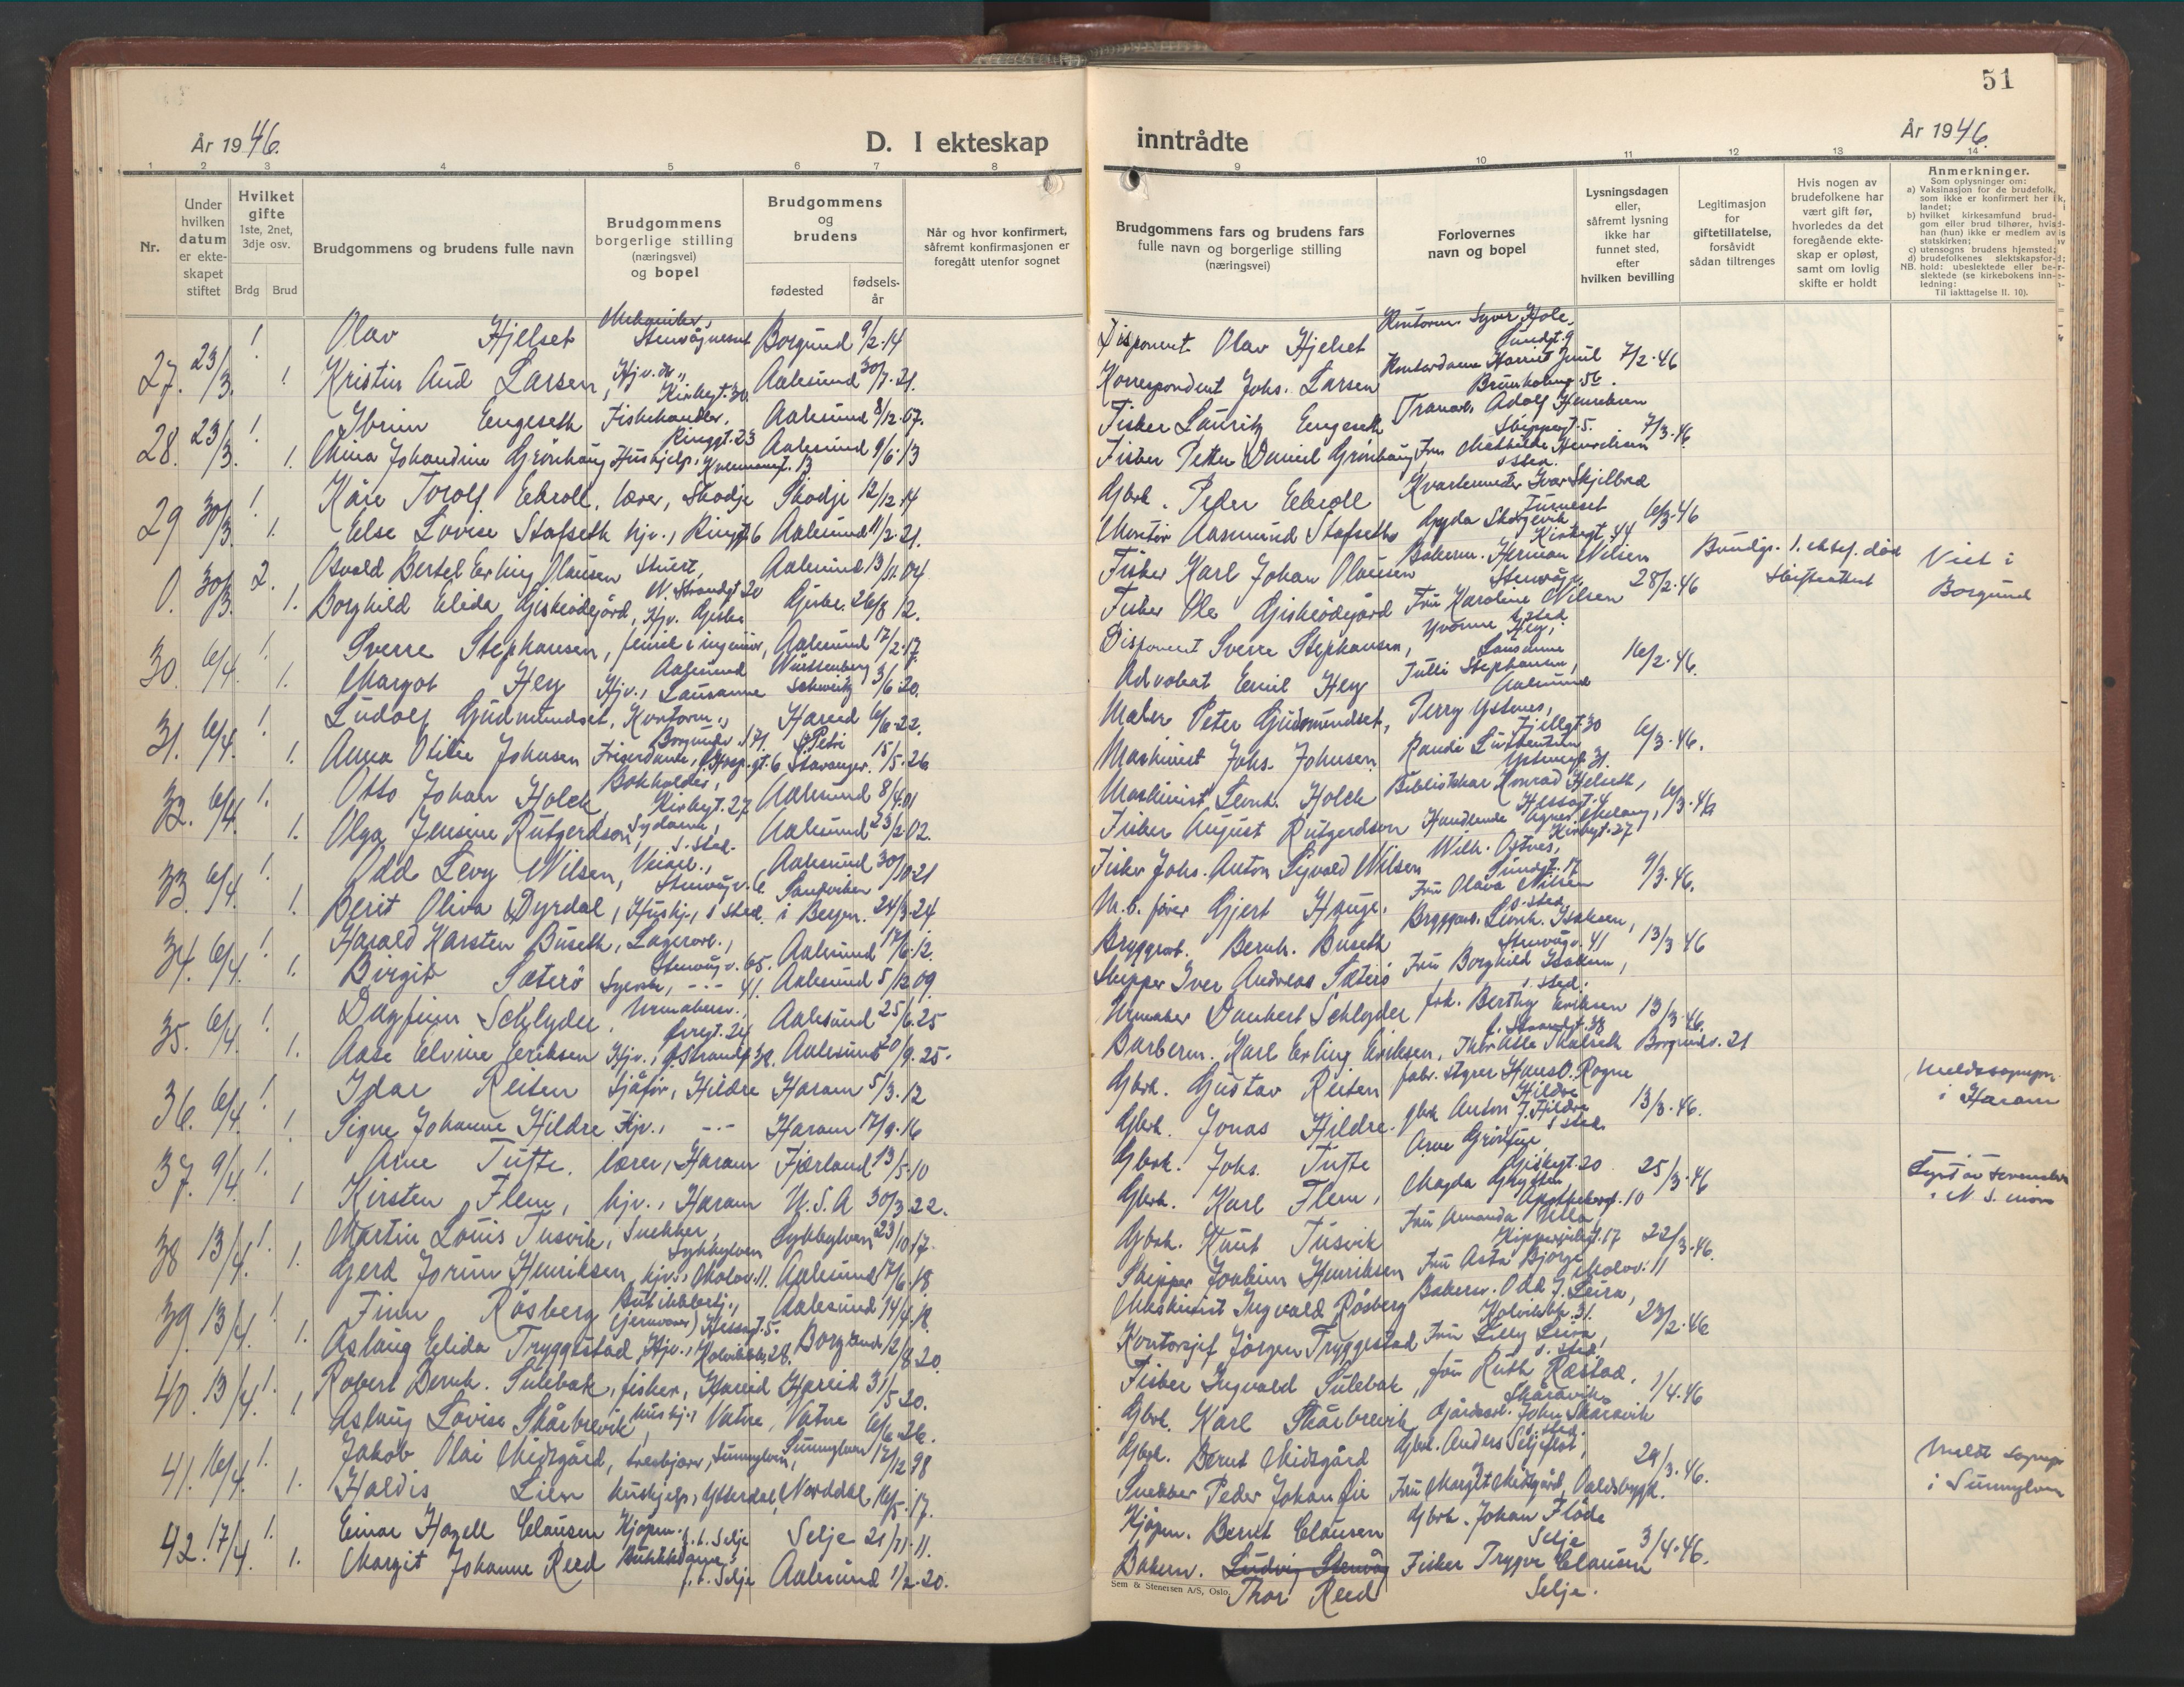 51
År 1946.
D. I ekteskap inntrådte
År 1946.
1 2 3 4 5 6 7 8 9 10 11 12 13 14
Nr.
Under hvilken datum er ekteskapet stiftet
Hvilket gifte 1ste, 2net, 3dje osv.
Brdg Brud
Brudgommens og brudens fulle navn
Brudgommens borgerlige stilling (næringsvei) og bopel
Brudgommens og brudens
fødested
fødselsår
Når og hvor konfirmert, såfremt konfirmasjonen er foregått utenfor sognet
Brudgommens fars og brudens fars fulle navn og borgerlige stilling (næringsvei)
Forlovernes navn og bopel
Lysningsdagen eller, såfremt lysning ikke har funnet sted, efter hvilken bevilling
Legitimasjon for giftetillatelse, forsåvidt sådan tiltrenges
Hvis nogen av brudefolkene har vært gift før, hvorledes da det foregående ekteskap er opløst, samt om lovlig skifte er holdt
Anmerkninger.
Som oplysninger om:
a) Vaksinasjon for de brudefolk, som ikke er konfirmert her i landet;
b) hvilket kirkesamfund brudgom eller brud tilhører, hvis han (hun) ikke er medlem av statskirken;
c) utensogns brudens hjemsted;
d) brudefolkenes slektskapsforhold: ubeslektede eller beslektede (se kirkebokens innledning:
NB.
Til iakttagelse II. 10).
27. 23/3. 1 Olav Hjelset Stenvågneset Borgund 9/2.14 Disponent Olav Hjelset Kontorm. Syver Hole,
1. Kristin Aud Larsen, Hjv. dr., Kirkegt. 30. Aalesund 30/7.21. Korrespondent Johs. Larsen Kontordame Harriet Juul 7/2.46
28. 23/3. 1. Engeseth Fiskehandler, Ringgt. 23 Aalesund 8/12.07. Fisker Lauritz Engeseth Adolf Henriksen Skippergt. 5.
1. Mina Johandine Grönhaug Hushjelp, 13 Aalesund 9/6.13 Fisker Petter Daniel Grönhaug Fru Mathilde Henriksen s. sted. 7/3.46
29 30/3. 1. Kåre Torolf Ekroll, lærer, Skodje Skodje 12/12.14 Gbrk. Peder Ekroll Kvartermester Ivar Skjilbred
1. Else Lovise Stafseth hjv., Ringgt. 6 Aalesund 11/2.21. Montör Aasmund Stafseth Gyda Kirkegt. 44 6/3.46
0. 30/3. 2. Osvald Bertel Erling Olausen Stuert, N. Strandgt 20 Aalesund 13/11.04 Fisker Karl Johan Olausen Bakerm. Herman Nilsen Brudgs. 1. ektef. död Skifteattest Viet i Borgund
1. Borghild Elida Giskeödegård, Hjv. Giske Giske. 26/8 12. Fisker Ole Giskeödegård Fru Karoline Nilsen s. sted 28/2.46
30. 6/4. 1. Sverre Stephansen, ingeniör, Aalesund Aalesund 17/2.17. Disponent Sverre Stephansen, Yvonne Hey, Lausanne
1. Margot Hey Hjv., Lausanne Schweitz 3/6.20. Advokat Emil Hey Tulli Stephansen, Aalesund 16/2.46.
31. 6/4. 1. Ludolf Gudmundset, Kontorm., Hareid 6/6.22. Maler Peter Gudmundset, Perry Ystenes, Fjellgt 30
1. Anna Otilie Johnsen Friserdame, St. Petri Stavanger. 15/5.26 Maskinist Johs. Johnsen 6/3.46.
32. 6/4. 1. Otto Johan Holck Bokholder, Kirkegt. 27 Aalesund 8/4.01 Maskinist Leonh. Holck Konrad Helseth,
1. Olga Jensine Rutgerdson, Sydame, s. sted. Aalesund 23/2.02. Fisker August Rutgerdson Kirkegt. 27 6/3.46
33. 6/4. 1. Odd Levy Nilsen, Stenvågv. 6. Aalesund 30/10.21 Fisker Johs. Anton Sigvald Nilsen Wilh. Sundgt. 17
1. Berit Oliva Dyrdal, Hushj., s. sted. Sandviken i Bergen. 24/3.24 Gjert Hauge. Fru Olava Nilsen s. sted 9/3.46.
34. 6/4. 1. Harald Karsten Buseth, Lagerarb., Stenvågv. 65. Aalesund 17/6.12. Bryggearb. Bernh. Buseth Bryggearb. Leonh. Isaksen, Stenvågv. 41
1. Birgit Sæterö Syerske, -"- 41. Aalesund 5/12 09. Skipper Iver Andreas Sæterö Fru Borghild Isaksen, s. sted. 13/3.46
35. 6/4. 1. Dagfinn Schlyder. Urmakersv., Aalesund 25/6.25 Urmaker Daubert Schlyder frk. Berthy Eriksen 13/3.46.
1. Aase Elvine Eriksen Hjv., Ö. Strandgt 38. Aalesund 20/9.25. Barberm. Karl Erling Eriksen, Borgundv. 21
36. 6/4. 1. Idar Reiten Sjåför, Hildre Haram 5/3.12 Gbrk. Gustav Reiten fabr. styrer Hans O. Rogne Hildre
1. Signe Johanne Hildre Hjv., -"- Haram 17/9.16 Gbrk. Jonas Hildre. gbrk Anton J. Hildre s. sted. 13/3.46. i Haram
37. 9/4. 1. Arne Tufte. lærer, Haram Fjærland 13/5.10 Gbrk. Johs. Tufte Arne Giskegt. 20
1 Kirsten Flem, hjv., Haram U.S.A 30/3.22. Gbrk. Karl Flem, Magda 25/3.46
38 13/4. 1. Martin Louis Tusvik, Snekker, Sykkylven Sykkylven 23/10.17. Gbrk. Knut Tusvik Fru Amanda Ulla,
1. Gerd Jorun Henriksen, hjv., Molov. 11. Aalesund 17/6.18. Skipper Joakim Henriksen Fru Asta Björge Molov. 11 22/3.46.
39. 13/4. 1. Finn Rösberg Butikkbetj., (jernvarer) Hessagt. 5. Aalesund 14/4.18. Maskinist Ingvald Rösberg Bakersv. Odd J. Leira,
1. Aslaug Elida Tryggestad, Hjv., 28. Borgund 12/8 20. Kontorsjef Jörgen Tryggestad Fru Lilly Leira, s. sted. 23/2.46
40. 13/4. 1. Robert Bernh. Sulebak, fisker, Hareid Hareid 31/5 20. Fisker Ingvald Sulebak, fru Ruth Røstad,
1 Aslaug Lovise Skårbrevik, hushj., Vatne, Vatne 6/6.26. Gbrk. Karl Skårbrevik John 1/4.46
41. 16/4. 1. Jakob Olai Midtgård, Sunnylven, Sunnylven 17/12 98 Gbrk. Bernt Midtgård Gbrk. Anders Seljeflot,
1. Haldis Lien hushjelp, Ytterdal, Norddal, 16/5.17. Snekker Peder Johan Lie Fru Margit Midtgård, 29/3.46. i Sunnylven
42. 17/4. 1. Einar Hagell Clausen Kjöpm. f. t. Selje Selje 21/11.11. Kjöpm. Bernt Clausen Gbrk. Johan Flöde Selje
1. Margit Johanne Reed f. t. Selje Aalesund 1/2.20. Bakerm. Ludvig Stenvåg Thor Reed Fisker Trygve Clausen Selje. 3/4.46.
Sem & Stenersen A/S, Oslo.